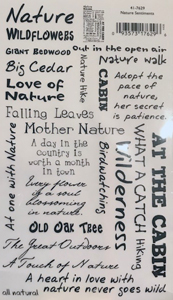 #L-7629
Nature Sentiments
Nature
WILDFLOWERS
GIANT REDWOOD
Big Cedar
Love of
Nature
Falling Leaves
Mother Nature
A day in
the country
is worth
a month
in town
Every flower
is a soul
blossoming
in nature.
OLD OAK TREE
The Great Outdoors
A Touch of Nature
A heart in love with
nature never goes wild
all natural
At one with Nature
Nature Hike
out in the open air
Nature walk
CABIN
Adopt the
pace of
nature,
her secret
is patience.
Birdwatching
Wilderness
WHAT A CATCH
Hiking
AT THE CABIN